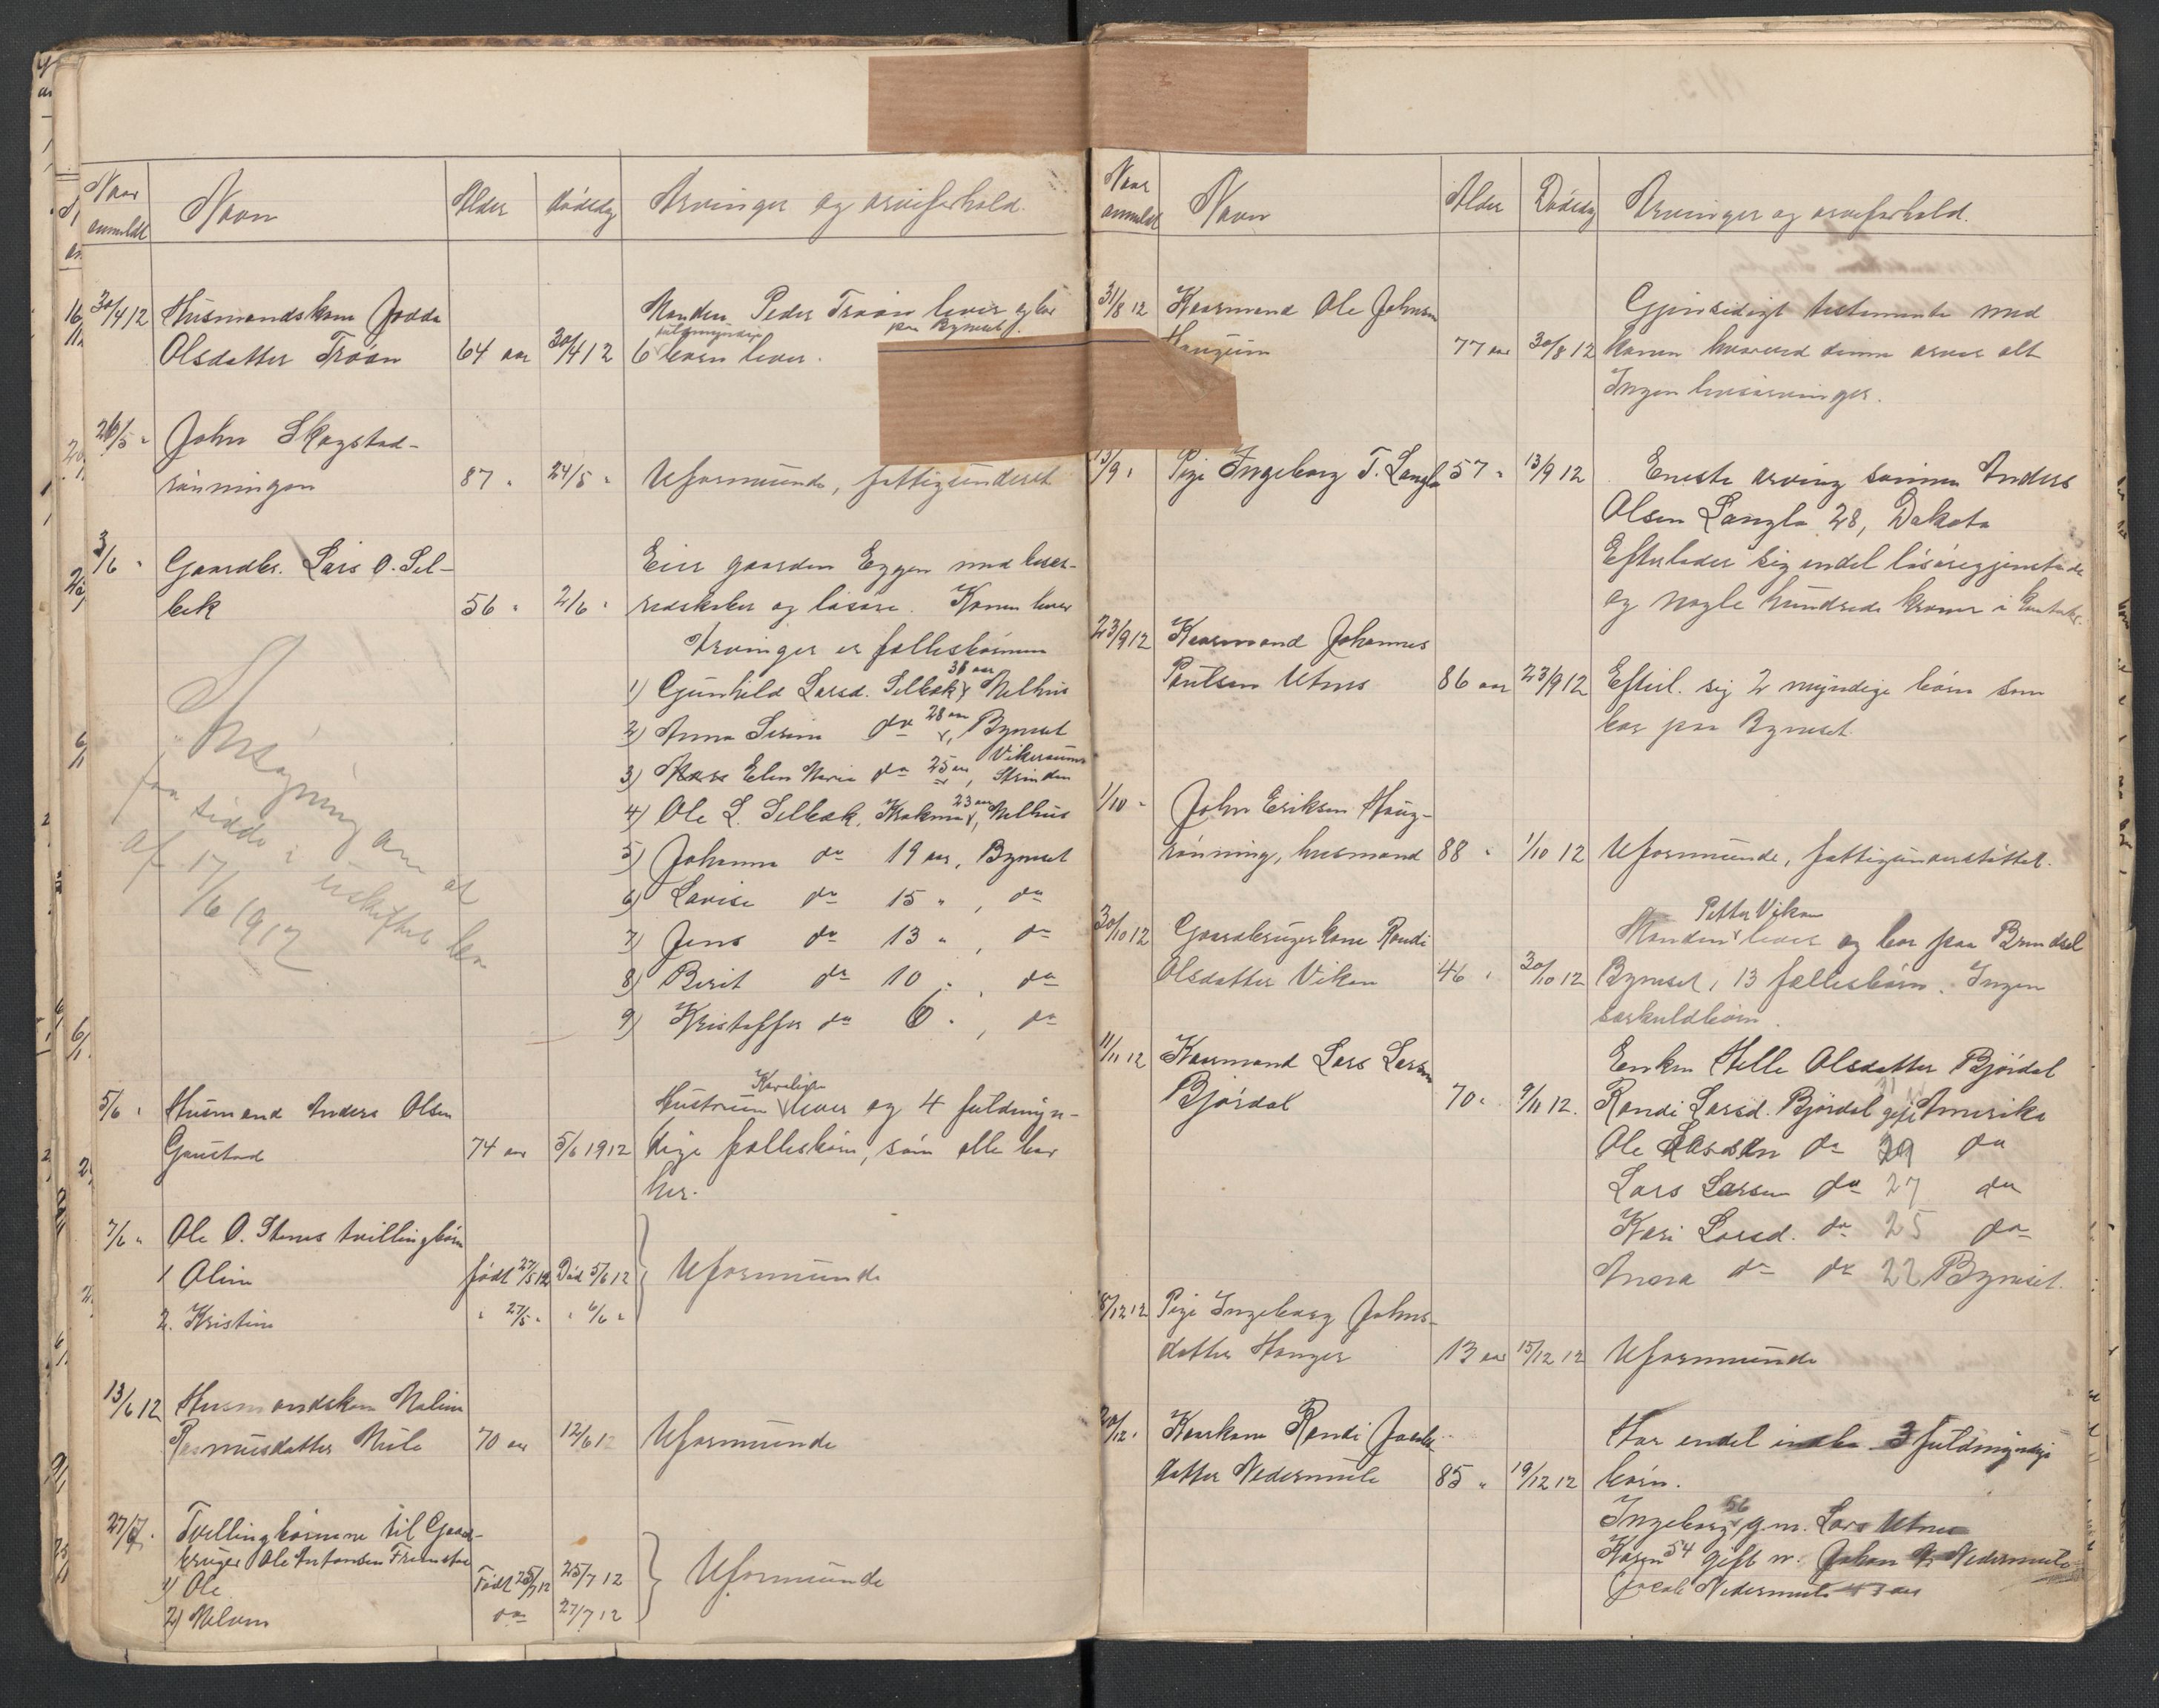 Naar anmeldt Navn Alder Dødsdag Arvinger og arveforhold.
30/4 12 Husmandskone Jodda Manden Peder Trøan lever og bor
fuldmyndige paa Bynesset.
Olsdatter Trøan 64 aar 30/4 12 6 børn lever.
26/5 " John Skogstad-
rønningen 87 " 24/5 " Uformuende, fattigunderst
3/6 " Gaardbr. Lars O. Sel- Eier gaarden Eggen med buser-
bek 56 " 2/6 " redskaber og løsøre. Konen lever
Arvinger er fællesbørnene
1) Gunhild Larsd. Selbæk 38 aar, Melhus
2) Anna Serine do 28 aar, Bynesset
3) Elen Maria do 25 aar, Strinden
4) Ole L. Selbæk, 23 aar, Melhus
5) Johanna do 19 aar, Bynesset
6) Lovise do 15 " , do
7) Jens do 13 " , do
8) Berit do 10 " , do
9) Kristoffer do 6 " , do
Ansøgning om at
faa sidde i uskiftet bo
af 17/6 1912
5/6 " Husmand Anders Olsen Hustruen Karoline lever og 4 fuldmyn-
Gaustad 74 aar 5/6 1912 dige fællesbørn, som alle bor
her.
7/6 " Ole O. Stenes tvillingbørn
1 Oline født 27/5 12 Død 5/6 12 Uformuende
2. Kristine " 27/5 " " 6/6 "
13/6 12 Husmandskone Malena
Rasmusdatter Mule 70 aar 12/6 12 Uformuende
27/7 " Tvillingbørnene til Gaard-
bruger Ole Antonsen Fremstad
1) Ole Født 25/7 12 25/7 12 Uformuende
2) do 27/7 12
Naar anmeldt Navn Alder Dødsdag Arvinger og arveforhold.
31/8 12 Kaarmand Ole Johnsen Gjensidigt testamente med
Haugum 77 aar 30/8 12 konen hvorved denne arver alt
Ingen livsarvinger.
13/9 " Pige Ingeborg T. Langlo 57 " 13/9 12 Eneste arving sønnen Anders
Olsen Langlo 28, Dakota
Efterlader sig endel løsøregjenstande
og nogle hundrede kroner i
23/9 12 Kaarmand Johannes
Paulsen Utnes 86 aar 23/9 12 Efterl. sig 2 myndige børn som
bor paa Bynesset.
1/10 " John Eriksen Haug-
rønning, husmand 88 " 1/10 12 Uformuende, fattigunderstøttet.
Petter Viken
30/10 12 Gaardbrugerkone Randi Manden lever og bor paa
Olsdatter Viken 46 " 30/10 12 Bynesset, 13 fællesbørn. Ingen
særkuldbørn.
11/11 12 Kaarmand Lars Larsen Enken Olsdatter Bjørdal
Bjørdal 70 " 9/11 12. Randi Larsd. Bjørdal 31 Amerika
Ole Larssen do 29 do
Lars Larsen do 27 do
Kari Larsd. do 25 do
Anna do do 22 Bynesset.
Pige Ingeborg Johns-
datter Hanger 13 aar 15/12 12 Uformuende
20/12 " Kaarkone Randi Jacobs- Har endel indbo. 3 fuldmyndige
datter Nedermule 85 " 19/12 12 børn.
Ingeborg 56 g.m. Lars Utnes
Karen 54 gift m. Johan Nedermule
Jacob Nedermule 43 aar